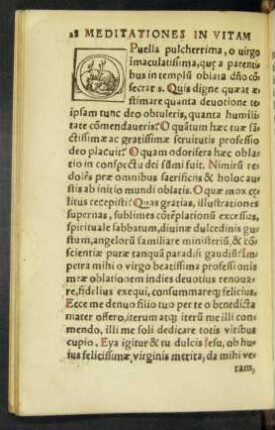 28 MEDITATIONES IN VITAM
O Puella pulcherrima, o virgo
imaculatissima, quę a parentibus
in templũ oblata dño cõ
secrata s. Quis digne quæat æ-
stimare quanta deuotione te
ipsam tunc deo obtuleris, quanta humili
tate cõmendaueris? O quãtum hæc tuæ sã-
ctissimæ ac gratissimæ seruitutis professio
deo placuit? O quam odorifera hæc obla-
tio in conspectu dei sũmi fuit. Nimirũ re-
dolẽs præ omnibus sacrificijs & holocau
stis ab initio mundi oblatis. O quæ mox cę
litus recepisti? Quas gratias, illustrationes
supernas, sublimes cõtẽplationũ excessus,
spirituale sabbatum, diuinæ dulcedinis gu
stum, angelorũ familiare ministeriũ, & cõ
scientiæ puræ tanquã paradisi gaudiũ? Im
petra mihi o virgo beatissima professionis
meæ oblationem indies deuotius renoua-
re, fidelius exequi, consummareq; felicius.
Ecce me denuo filio tuo per te o benedicta
mater offero, iterum atq; iterũ me illi com
mendo, illi me soli dedicare totis viribus
cupio. Eya igitur & tu dulcis Iesu, ob hu
ius felicissimæ virginis merita, da mihi ve
ram,